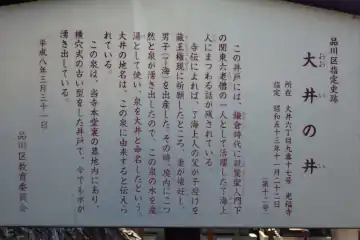 品川区指定史跡
大井の井
所在 大井六丁目九番十七号 光福寺
指定 昭和五十三年十一月二十二日
（第十二号）
この井戸には、鎌倉時代に親鸞聖人門下
の関東六老僧の一人として活躍した了海上
人にまつわる話が残されている
寺伝によれば、了海上人の父が子授けを
蔵王権現に祈願したところ、妻が懐妊し、
男子（了海）を出産した。その時、境内にこつ
然と泉が湧き出したので、この泉の水を産
湯として使い、泉を大井と命名したという。
大井の地名は、この泉に由来すると伝えら
れている。
この泉は、当寺本堂裏の墓地内にあり、
横穴式の古い型をした井戸で、今でも水が
湧き出している。
平成八年三月三十一日
品川区教育委員会